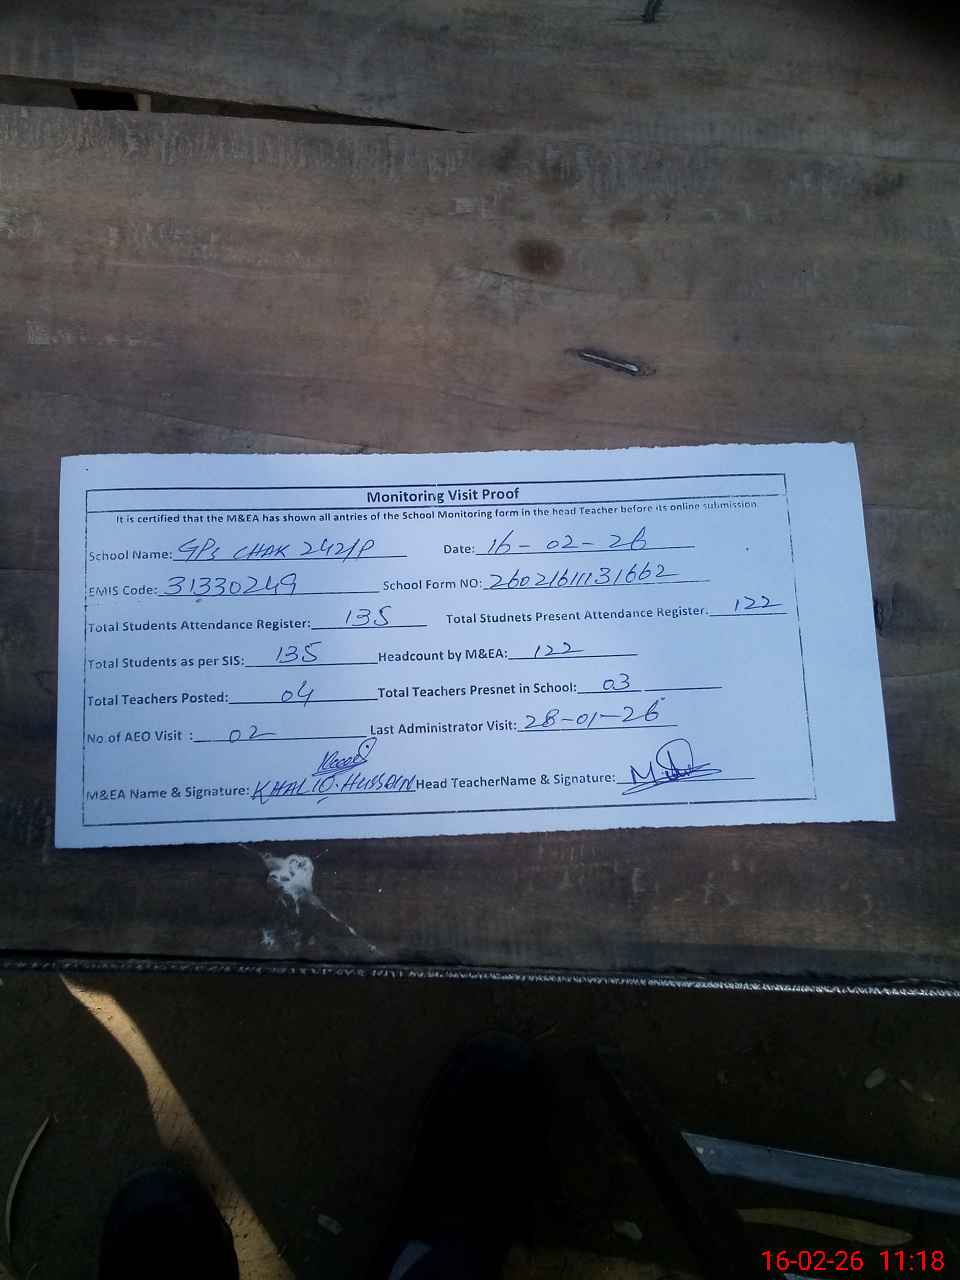 Monitoring Visit Proof
It is certified that the M&EA has shown all antries of the School Monitoring form in the head Teacher before its online submission.
School Name: GPS CHAK 242/P Date: 16-02-26
EMIS Code: 31330249 School Form NO: 26021611131662
Total Students Attendance Register: 135 Total Studnets Present Attendance Register: 122
Total Students as per SIS: 135 Headcount by M&EA: 122
Total Teachers Posted: 04 Total Teachers Presnet in School: 03
No of AEO Visit : 02 Last Administrator Visit: 28-01-26
M&EA Name & Signature: KHALIQ.HUSSAIN Head TeacherName & Signature:
16-02-26 11:18